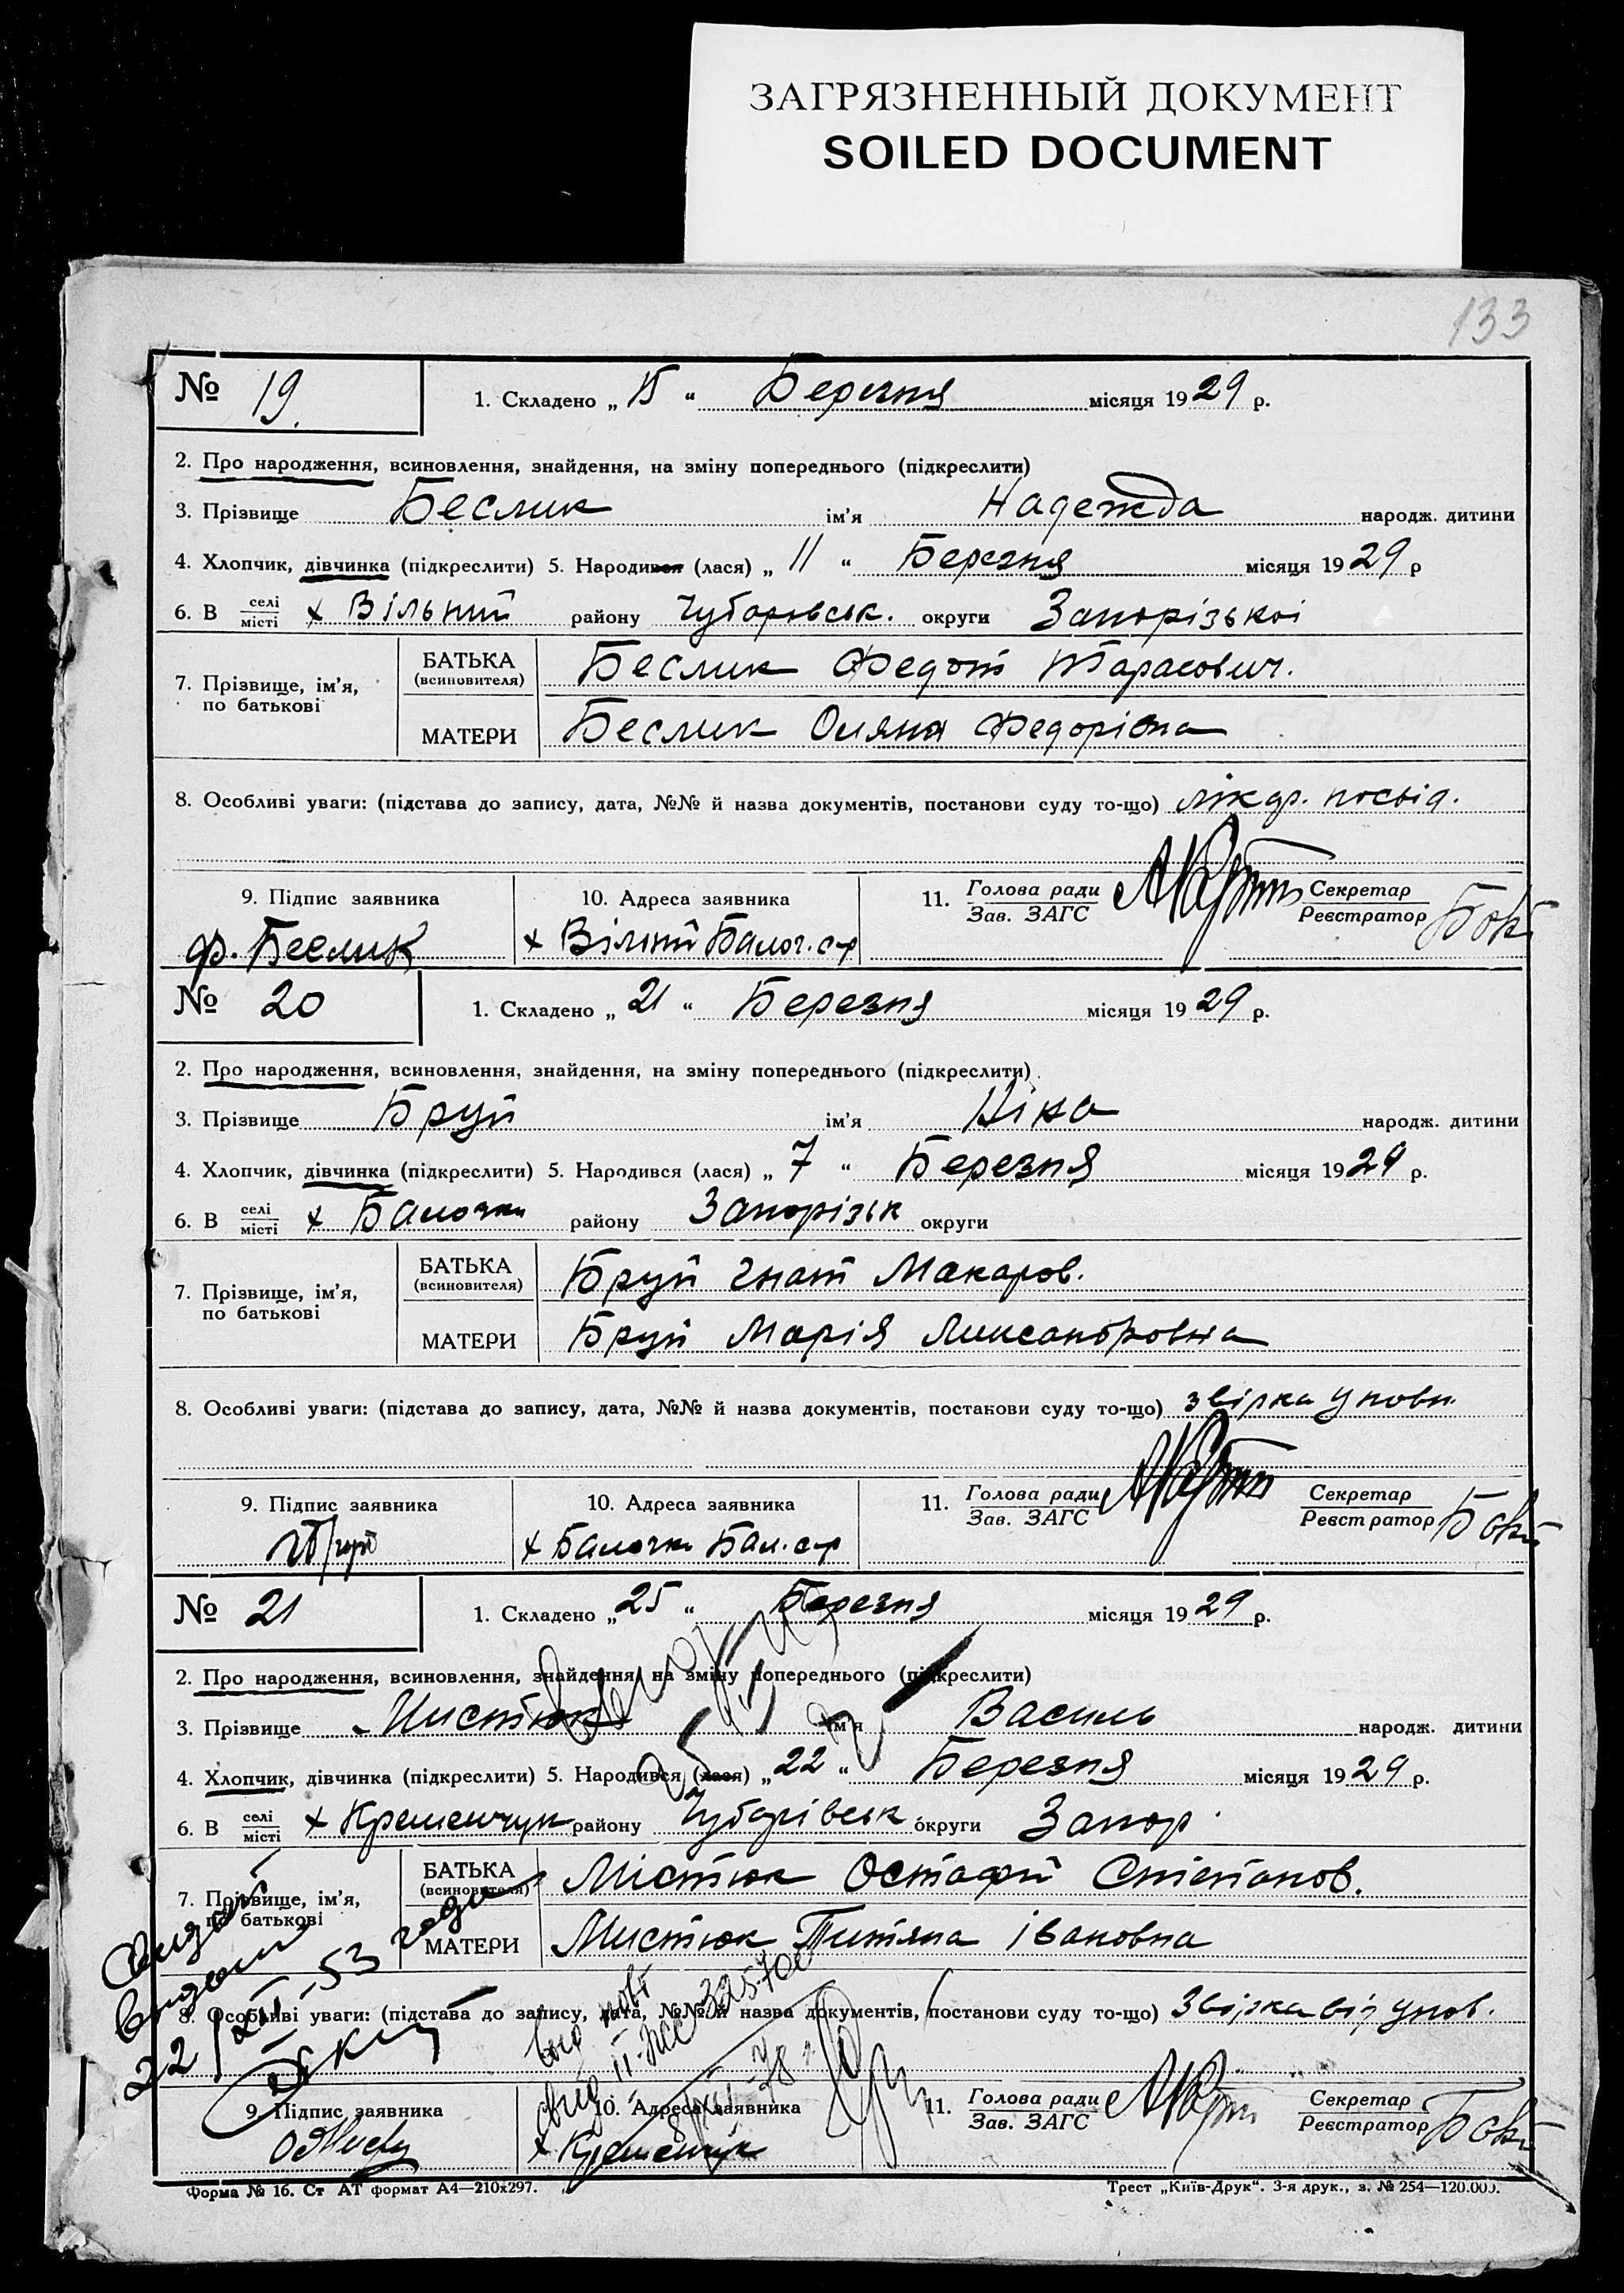 ЗАГРЯЗНЕННЫЙ ДОКУМЕНТ
SOILED DOCUMENT
133
№ 19. 1. Складено „ 15 “ Березня місяця 1929 р.
2. Про народження, всиновлення, знайдення, на зміну попереднього (підкреслити)
3. Прізвище Беслик ім’я Надежда народж. дитини
4. Хлопчик, дівчинка (підкреслити) 5. Народився (лася) „ 11 “ Березня місяця 1929 р
6. В селі місті х Вільний району Чубаровськ. округи Запорізькоі
7. Прізвище, ім’я, по батькові
БАТЬКА (всиновителя) Беслик Федот Тарасович.
МАТЕРИ Беслик Оляна Федорівна
8. Особливі уваги: (підстава до запису, дата, №№ й назва документів, постанови суду то-що) посвід.
9. Підпис заявника 10. Адреса заявника 11. Голова ради Зав. ЗАГС Секретар Реєстратор
Ф. Беслик х Вільний Балоч. с-р
№ 20 1. Складено „ 21 “ Березня місяця 1929 р.
2. Про народження, всиновлення, знайдення, на зміну попереднього (підкреслити)
3. Прізвище Бруй ім’я Ніна народж. дитини
4. Хлопчик, дівчинка (підкреслити) 5. Народився (лася) „ 7 “ Березня місяця 1929 р.
6. В селі місті х Балочки району Запорізьк округи
7. Прізвище, ім’я, по батькові
БАТЬКА (всиновителя) Бруй Гнат Макаров.
МАТЕРИ Бруй Марія Лиисандровна
8. Особливі уваги: (підстава до запису, дата, №№ й назва документів, постанови суду то-що) звірка уповн.
9. Підпис заявника 10. Адреса заявника 11. Голова ради Зав. ЗАГС Секретар Реєстратор
х Балочки Бал. с-р
№ 21 1. Складено „ 25 “ Березня місяця 1929 р.
2. Про народження, всиновлення, знайдення, на зміну попереднього (підкреслити)
3. Прізвище Мистюк ім’я Василь народж. дитини
4. Хлопчик, дівчинка (підкреслити) 5. Народився (лася) „ 22 “ Березня місяця 1929 р.
6. В селі місті х Кременчук району Чубарівськ. округи Запор.
7. Прізвище, ім’я, по батькові
БАТЬКА (всиновителя) Містюк Остафій Степанов.
МАТЕРИ Мистюк Титяна Івановна
8. Особливі уваги: (підстава до запису, дата, №№ й назва документів, постанови суду то-що) Звірка від упов.
9. Підпис заявника 10. Адреса заявника 11. Голова ради Зав. ЗАГС Секретар Реєстратор
х Кременчук
Форма № 16. Ст АТ формат А4—210х297. Трест „Київ-Друк“. 3-я друк., з. № 254—120.000.